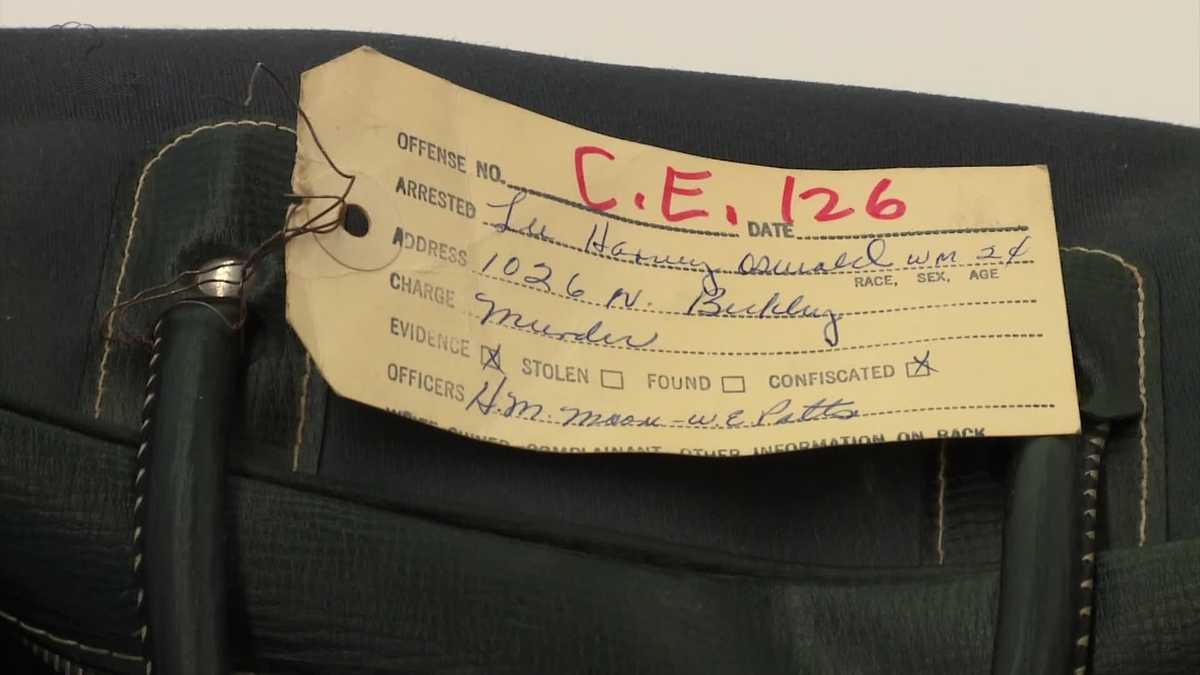 OFFENSE NO. C.E. 126 DATE
ARRESTED Lee Harvey Oswald WM 24
RACE, SEX, AGE
ADDRESS 1026 N. Beckley
CHARGE Murder
EVIDENCE ☒ STOLEN ☐ FOUND ☐ CONFISCATED ☒
OFFICERS H.M. Moore - W.E. Potts
OWNER, COMPLAINANT, OTHER INFORMATION ON BACK